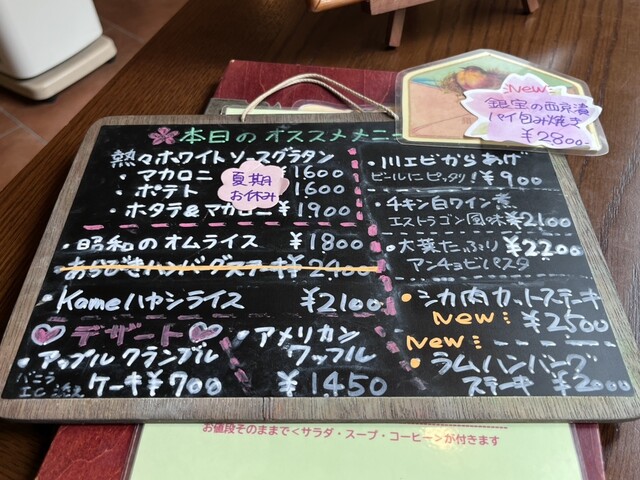 本日のオススメメニー
熱々ホワイトソースグラタン
・マカロニ ¥1600
・ポテト 1600
・ホタテ&マカロニ ¥1900
夏期
お休み
・昭和のオムライス ¥1800
あらびきハンバーグステーキ ¥2400
・Kameハヤシライス ¥2100
デザート
・アップルクランブル
ケーキ ¥700
バニラ
・アメリカン
ワッフル
¥1450
New:
銀宝の西京漬
パイ包み焼き
¥2800-
・川エビからあげ
ビールにピッタリ! ¥900
・チキン白ワイン煮
エストラゴン風味 ¥2100
・大葉たっぷり ¥2200
アンチョビパスタ
・シカ肉カットステーキ
New: ¥2500
New:
・ラムハンバーグ
ステーキ ¥2000
お値段そのままで<サラダ・スープ・コーヒー>が付きます